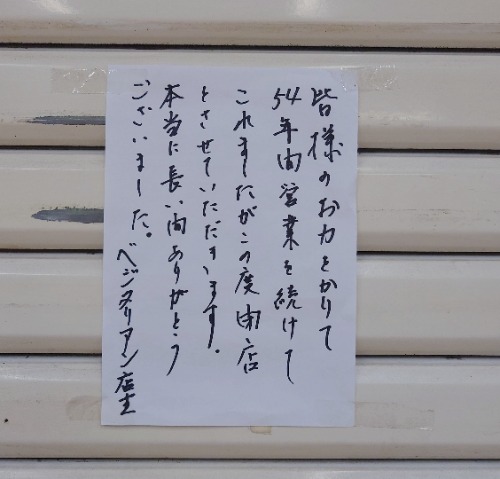 皆様のお力をかりて
54年間営業を続けて
これましたがこの度閉店
とさせていただきます。
本当に長い間ありがとう
ございました。
ベジタリアン店主